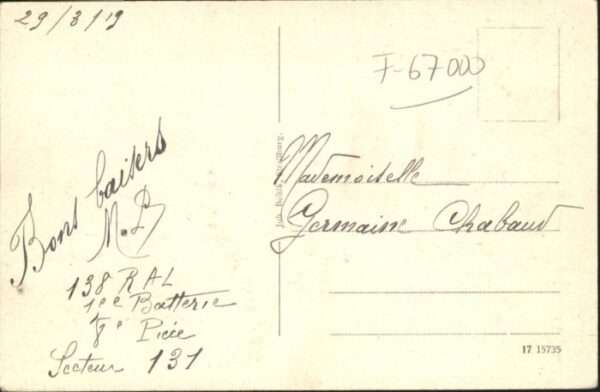 29/3/19
F-67000
Bons baisers
138 RAL
Batterie
Pièce
Secteur 131
Mademoiselle
Germaine Chabaud
17 15735